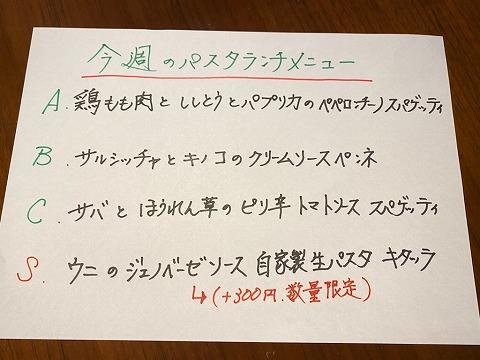 今週のパスタランチメニュー
A. 鶏もも肉とししとうとパプリカのペペロンチーノスパゲッティ
B. サルシッチャとキノコのクリームソースペンネ
C. サバとほうれん草のピリ辛トマトソーススパゲッティ
S. ウニのジェノベーゼソース 自家製生パスタ キタッラ
↳(+300円.数量限定)